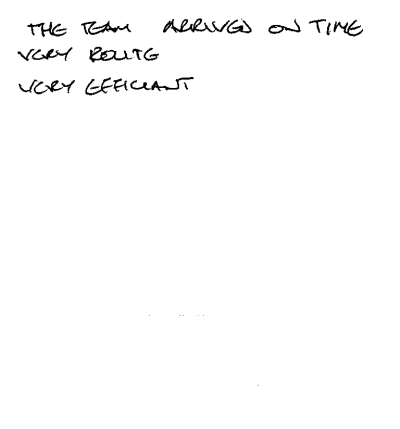 THE TEAM ARRIVED ON TIME
VERY POLITE
VERY EFFICIANT